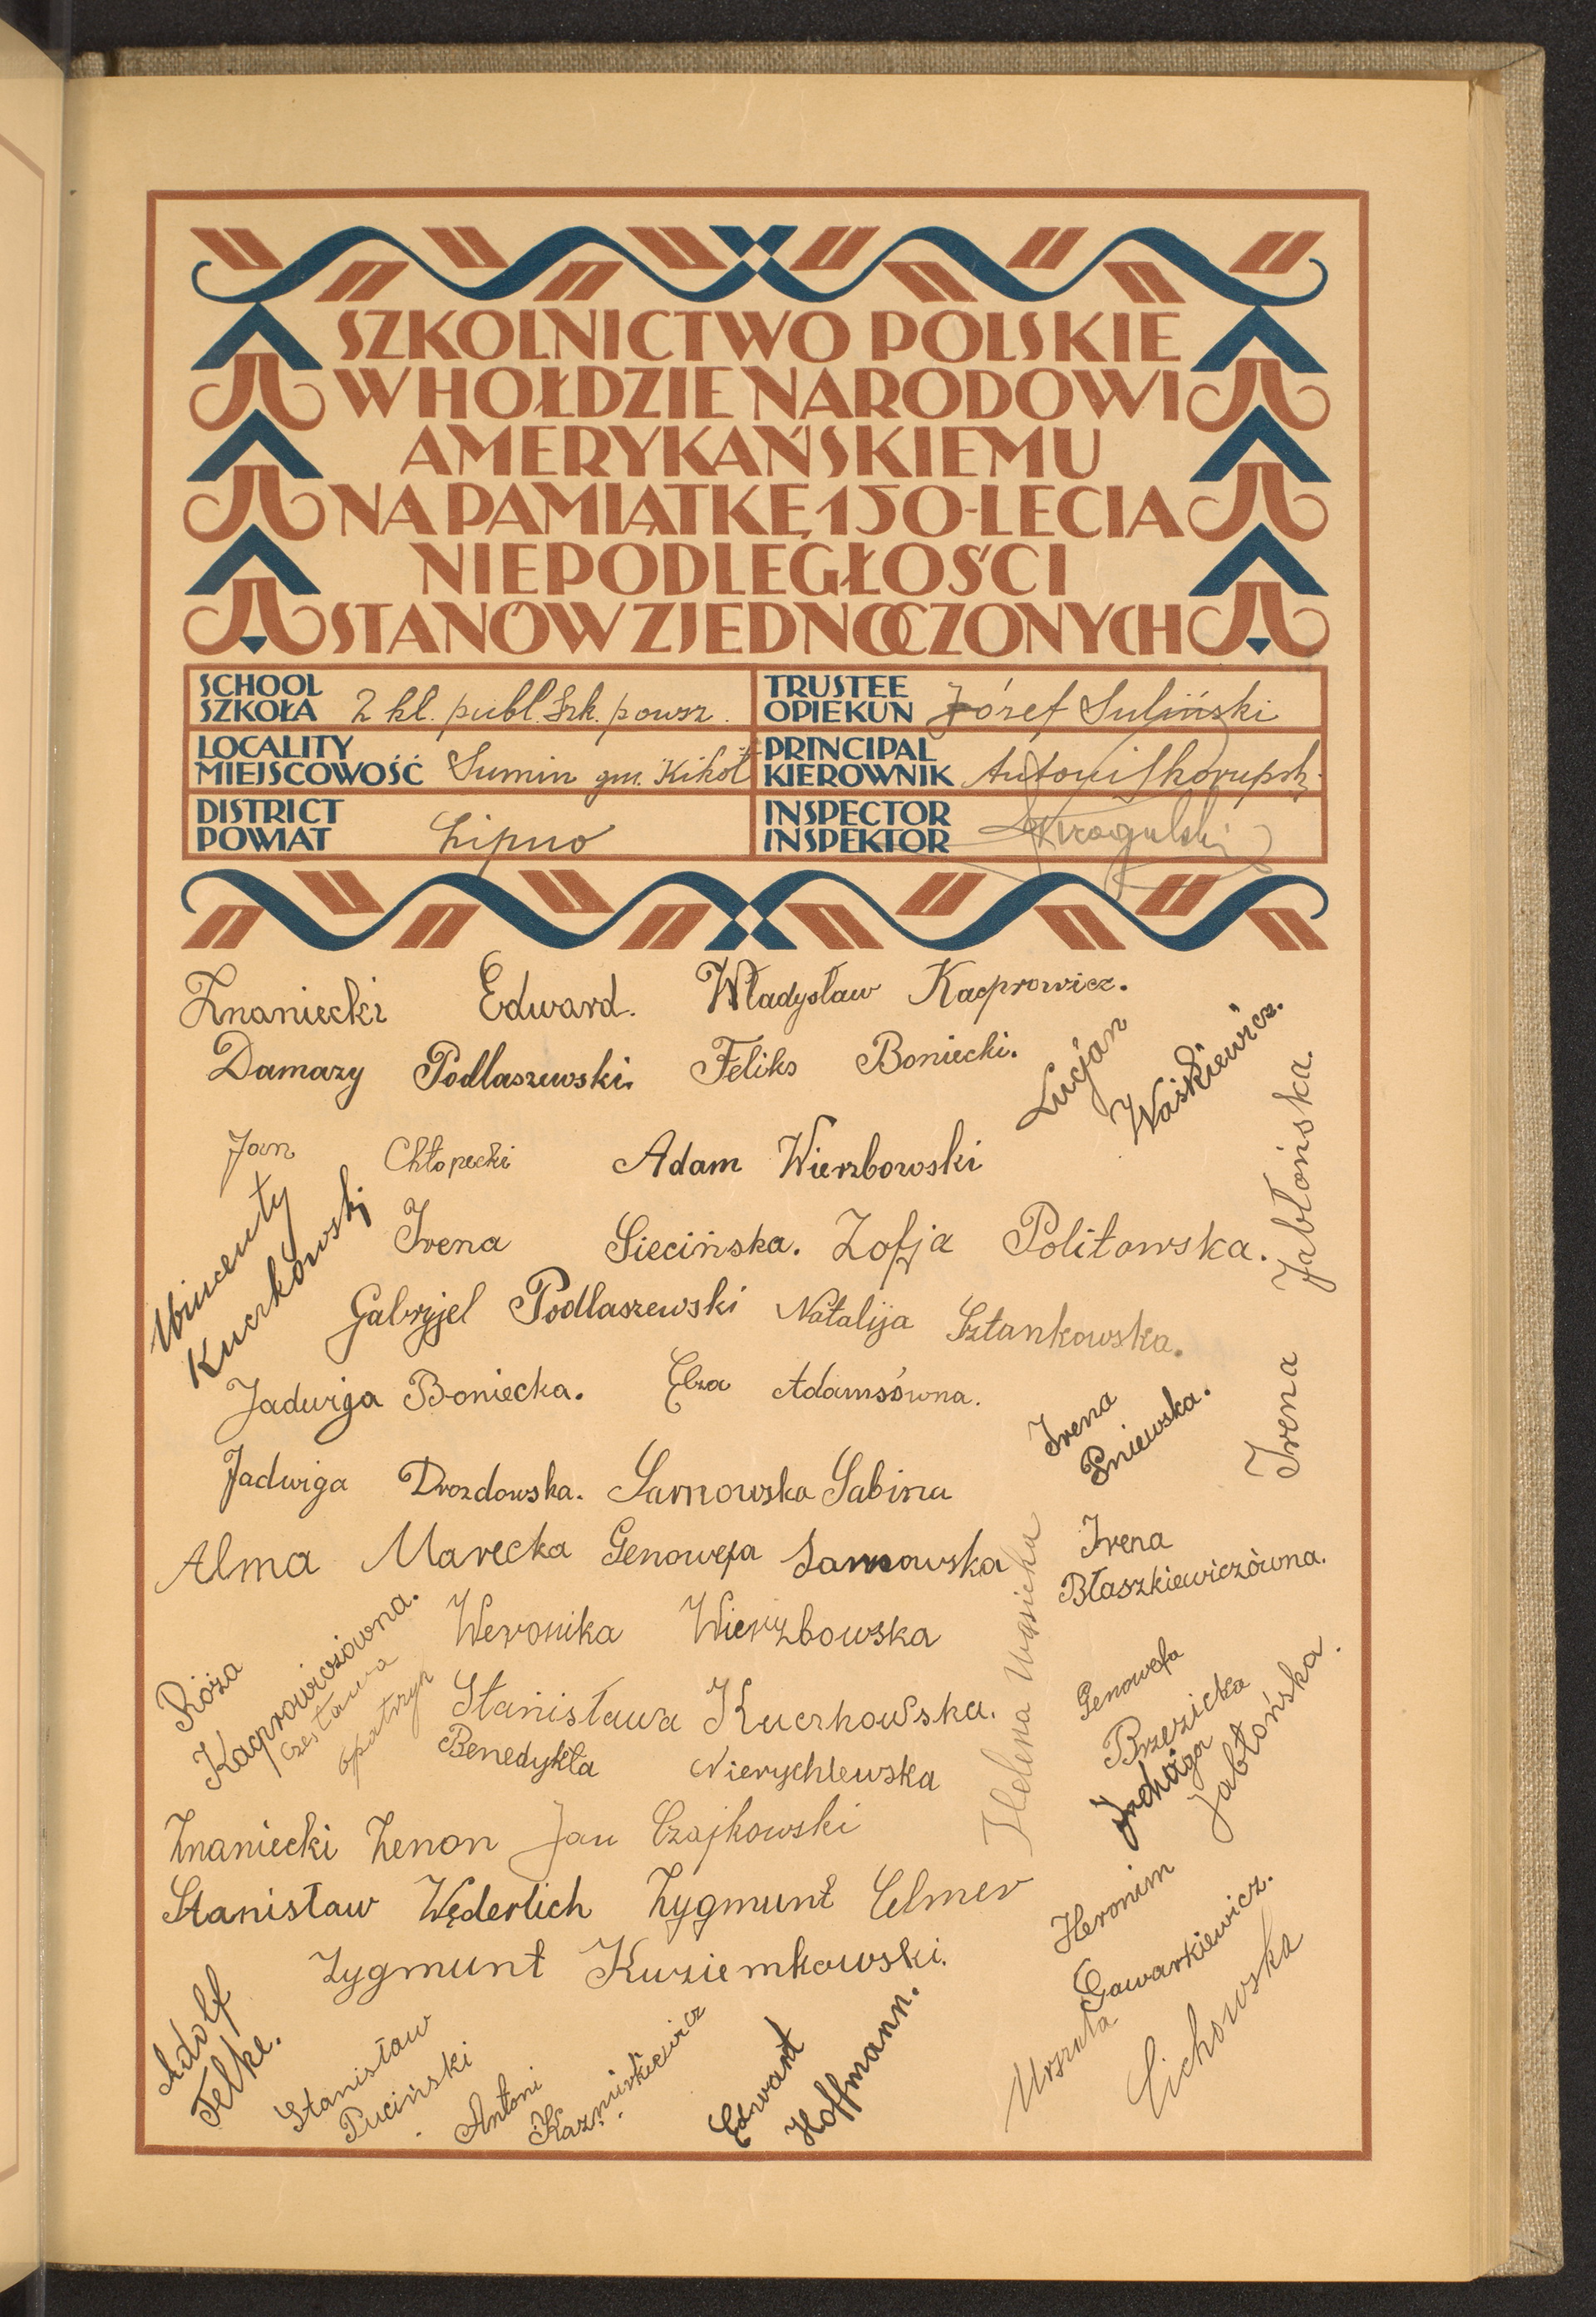 SZKOLNICTWO POLSKIE
W HOŁDZIE NARODOWI
AMERYKAŃSKIEMU
NA PAMIĄTKĘ 150-LECIA
NIEPODLEGŁOŚCI
STANÓW ZJEDNOCZONYCH
SCHOOL
SZKOŁA 2 kl. publ. Szk. powsz.
TRUSTEE
OPIEKUN Józef Suliński
LOCALITY
MIEJSCOWOŚĆ Sumin gm. Kikół
PRINCIPAL
KIEROWNIK Antoni Skorupsk
DISTRICT
POWIAT Lipno
INSPECTOR
INSPEKTOR Kragulski
Znaniecki Edward. Władysław Kacprowicz.
Damazy Podlaszewski. Feliks Boniecki.
Lucjan
Waśkiewicz.
Jan Chłopecki Adam Wierzbowski
Wincenty
Kuczkowski
Irena Siecińska. Zofja Politowska.
Irena Jabłońska.
Gabryjel Podlaszewski Natalija Sztankowska.
Jadwiga Boniecka. Elza Adamsówna.
Irena
Pniewska.
Jadwiga Drozdowska. Sarnowska Sabina
Alma Marecka Genowefa Sarnowska
Irena
Błaszkiewiczówna.
Helena Wąsicka
Róża
Kacprowiczówna.
Czesława
Opatrzyk
Weronika Wierzbowska
Stanisława Kuczkowska.
Benedykta Nierychlewska
Genowefa
Brzezicka
Jadwiga
Jabłońska.
Znaniecki Zenon Jan Czajkowski
Stanisław Węderlich Zygmunt Celmer
Zygmunt Kuziemkowski.
Heronim
Gawarkiewicz.
Urszula
Cichowska
Adolf
Felke.
Stanisław
Puciński
Antoni
Kaźmirkiewicz
Edwart
Hoffmann.